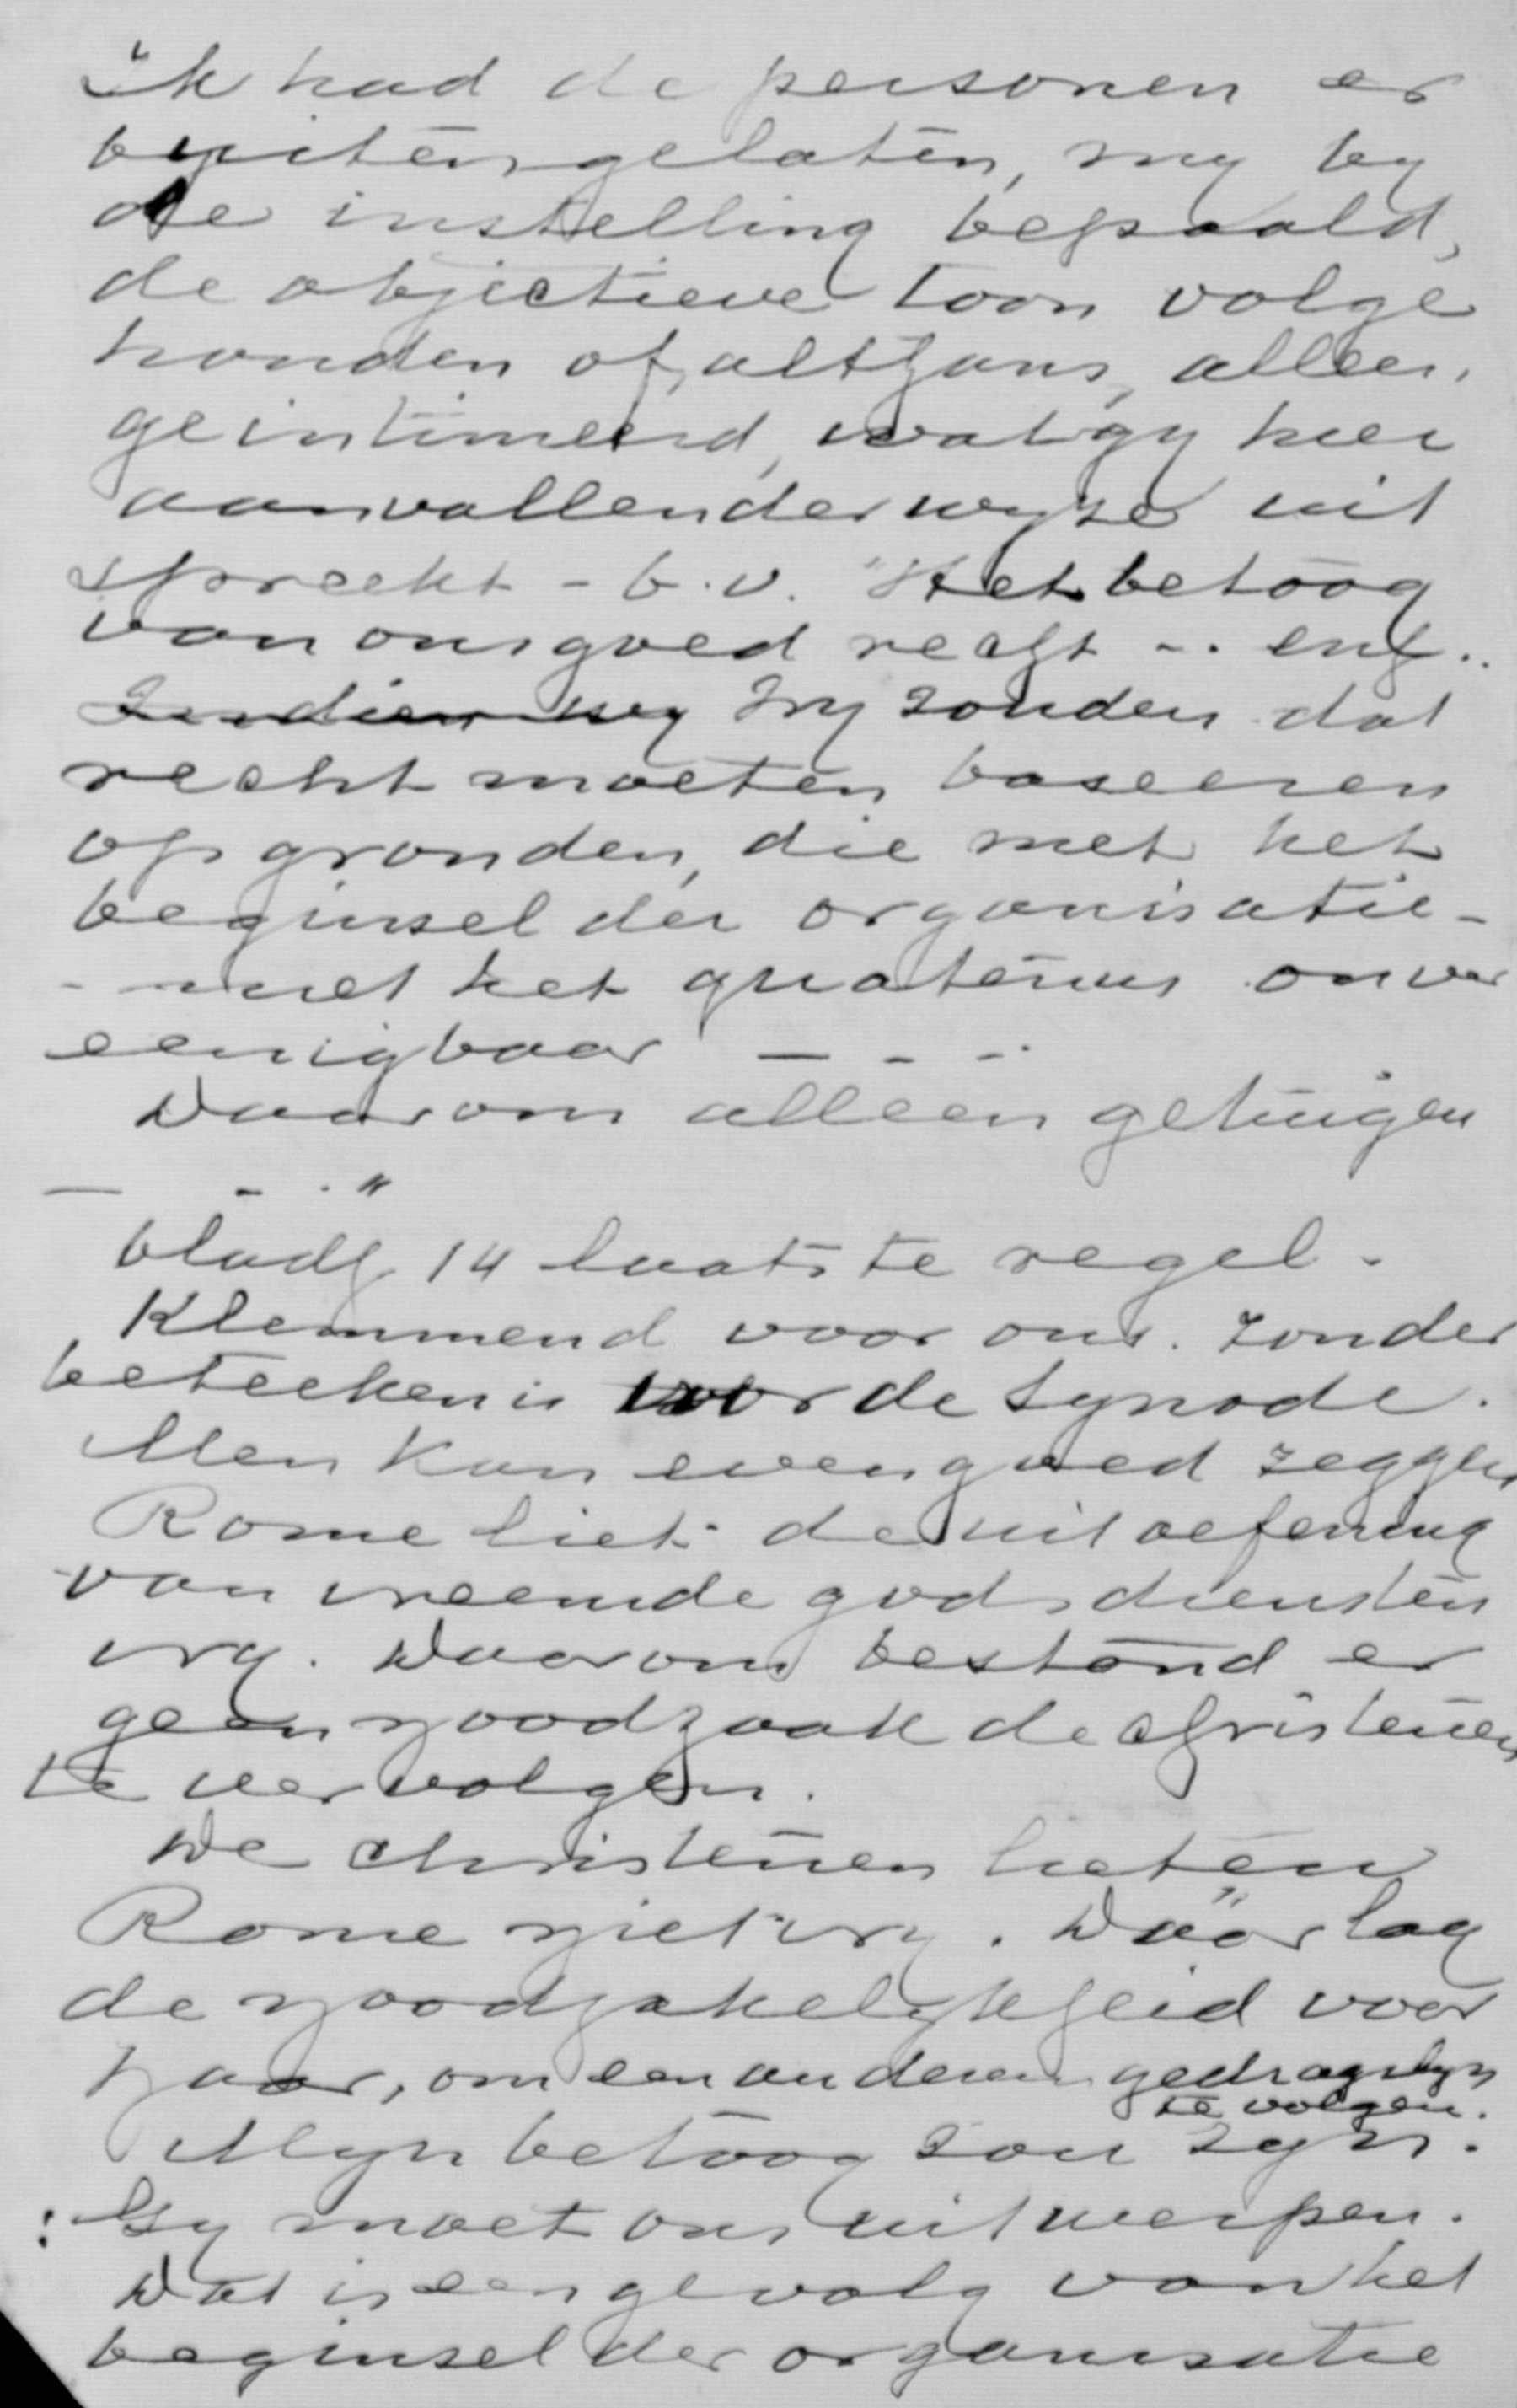 Ik had de personen er
buitengelaten, my by
de instelling bepaald,
de objectieve toon volge
houden of althans, alleen
geintimeerd, wat gy hier
aanvallenderwyze uit
spreekt - b.v. "Het betoog
van ons goed recht -.. enz..
Indien wy Wy zouden dat
recht moeten baseeren
op gronden, die met het
beginsel der organisatie -
- met het quatenus onver
eenigbaar — - -.
Daarom alleen getuigen
— - . "
bladz 14 laatste regel.
Klemmend voor ons. Zonder
beteekenis voor de Synode.
Men kan evengoed zeggen
Rome liet de uitoefening
van vreemde godsdiensten
vry. Daarom bestond er
geen noodzaak de christenen
te vervolgen.
De christenen lieten
Rome niet vry. Daar lag
de noodzakelykheid voor
haar, om een anderen gedragslyn
te volgen.
Myn betoog zou zyn.
: Gy moet ons uitwerpen.
Dat is een gevolg van het
beginsel der organisatie